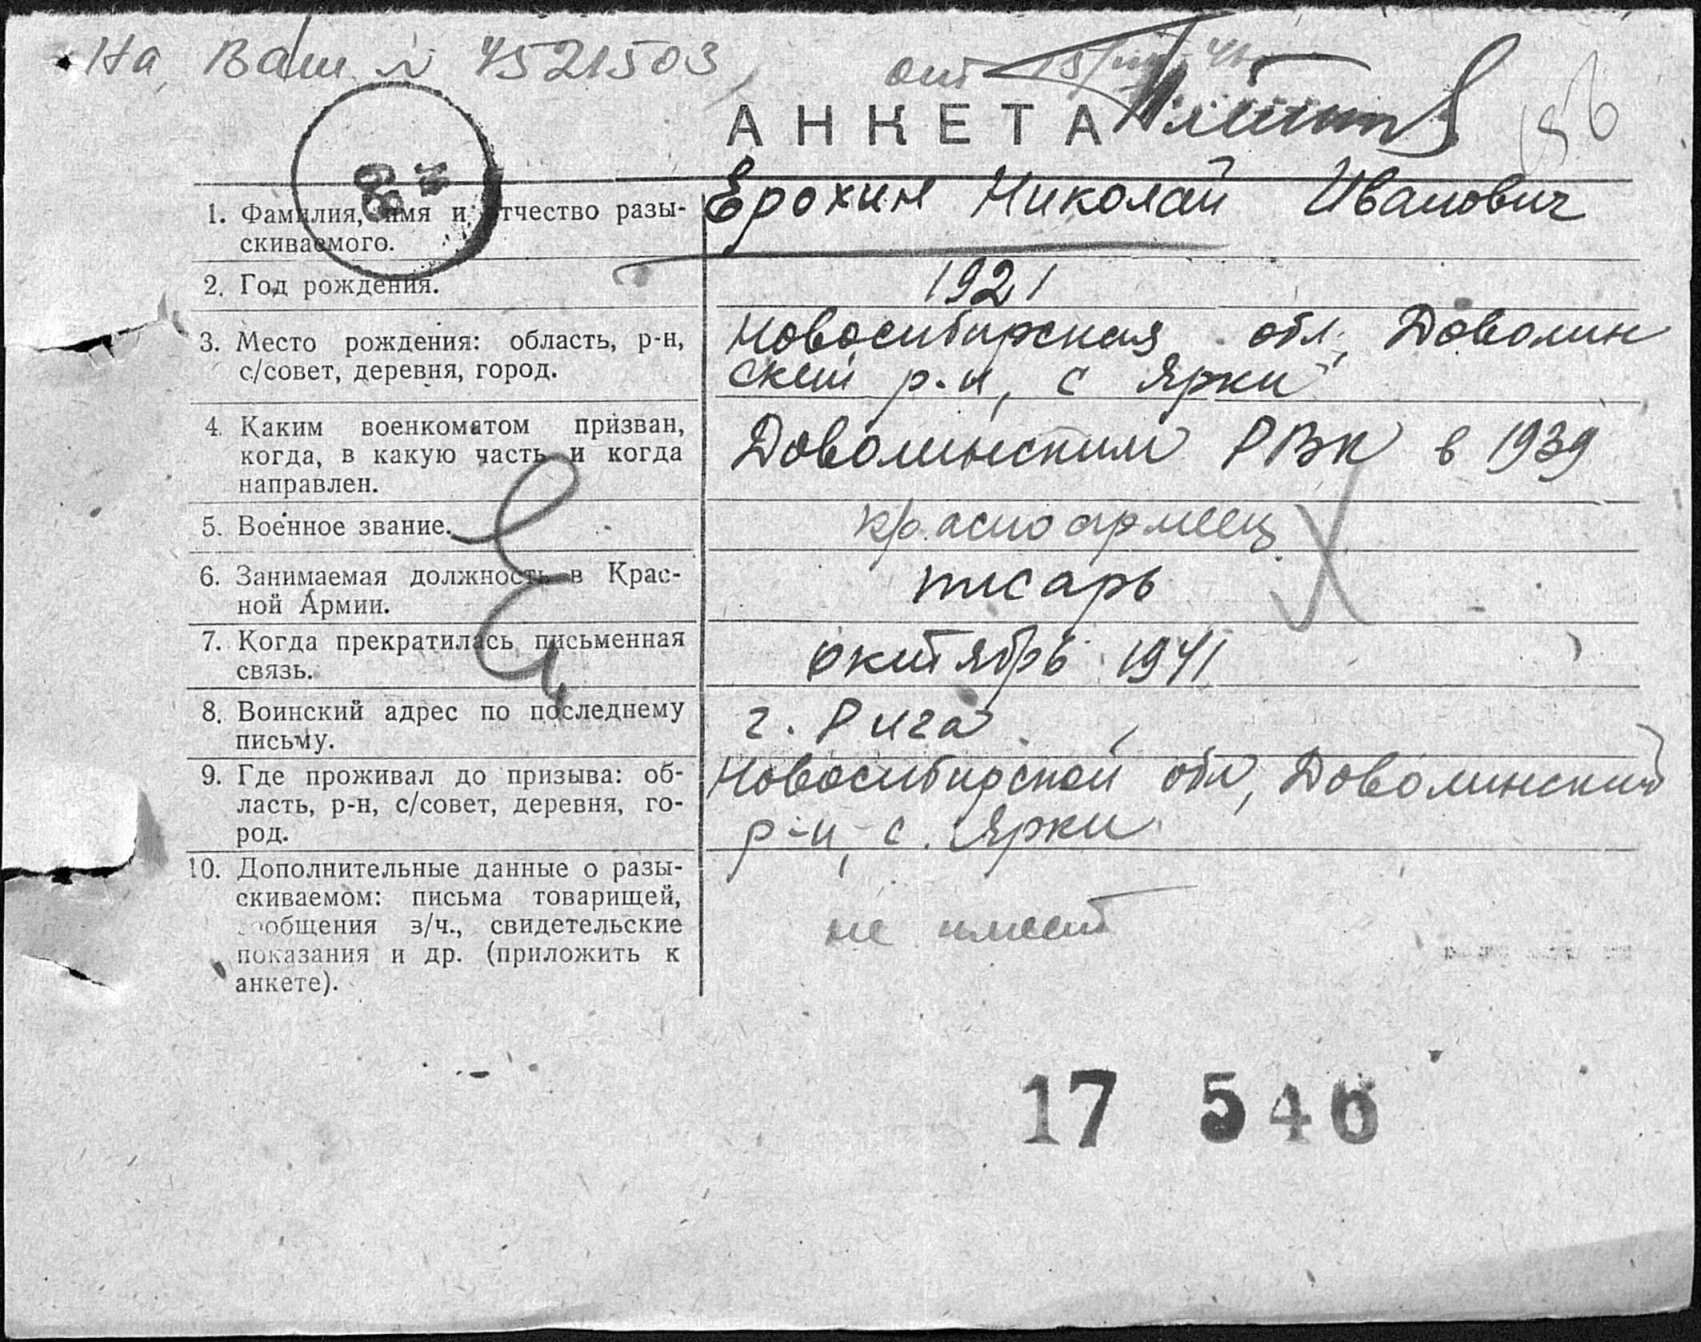 На Ваш № 4521503 от
АНКЕТА
186
№
68
1. Фамилия, имя и отчество разы-
скиваемого.
Ерохин Николай Иванович
2. Год рождения.
1921
3. Место рождения: область, р-н,
с/совет, деревня, город.
Новосибирская обл, Доволин
ский р-н, с Ярки
4. Каким военкоматом призван,
когда, в какую часть и когда
направлен.
Доволинским РВК в 1939
5. Военное звание.
красноармеец
6. Занимаемая должность в Крас-
ной Армии.
писарь
7. Когда прекратилась письменная
связь.
октябрь 1941
8. Воинский адрес по последнему
письму.
г. Рига
9. Где проживал до призыва: об-
ласть, р-н, с/совет, деревня, го-
род.
Новосибирской обл, Доволинский
р-н, с. Ярки
10. Дополнительные данные о разы-
скиваемом: письма товарищей,
сообщения з/ч., свидетельские
показания и др. (приложить к
анкете).
не имеет
17 546